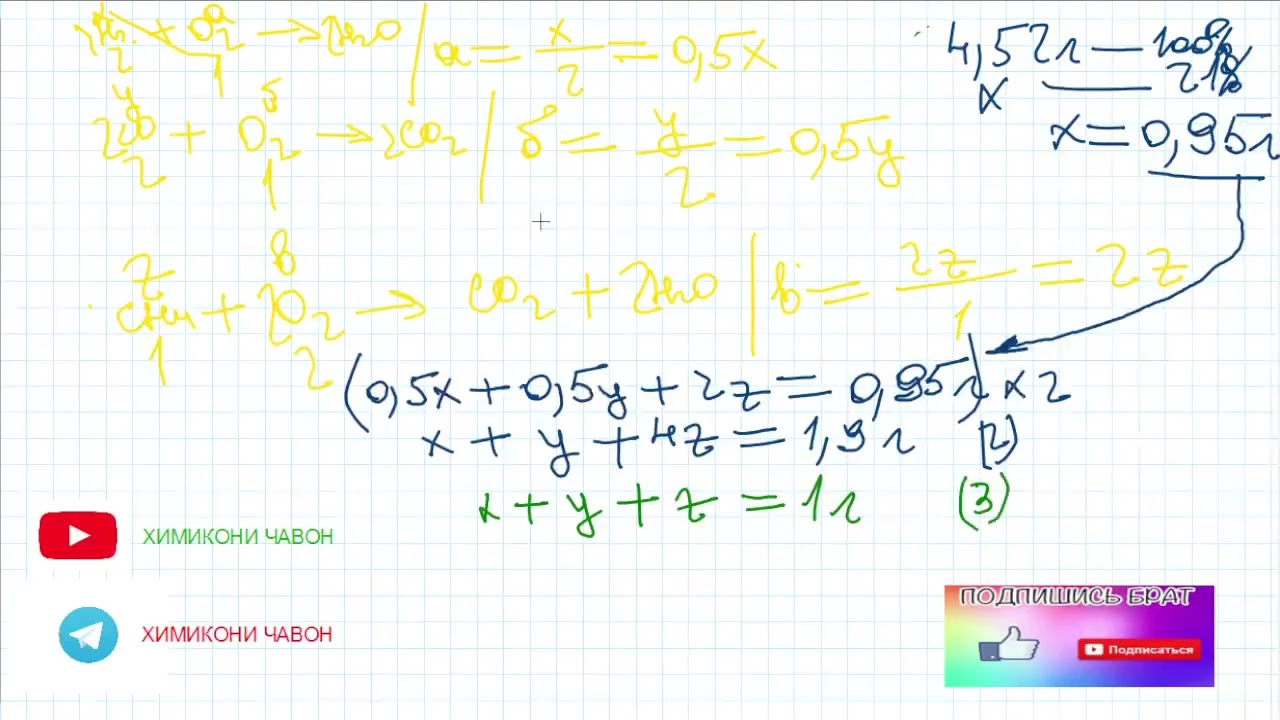 2H₂ + O₂ → 2H₂O | a = x/2 = 0,5x
2CO + O₂ → 2CO₂ | б = y/2 = 0,5y
CH₄ + 2O₂ → CO₂ + 2H₂O | в = 2z/1 = 2z
4,52л — 100%
x — 21%
x = 0,95л
(0,5x + 0,5y + 2z = 0,95л) x 2
x + y + 4z = 1,9л (2)
x + y + z = 1л (3)
ХИМИКОНИ ЧАВОН
ХИМИКОНИ ЧАВОН
ПОДПИШИСЬ БРАТ
Подписаться